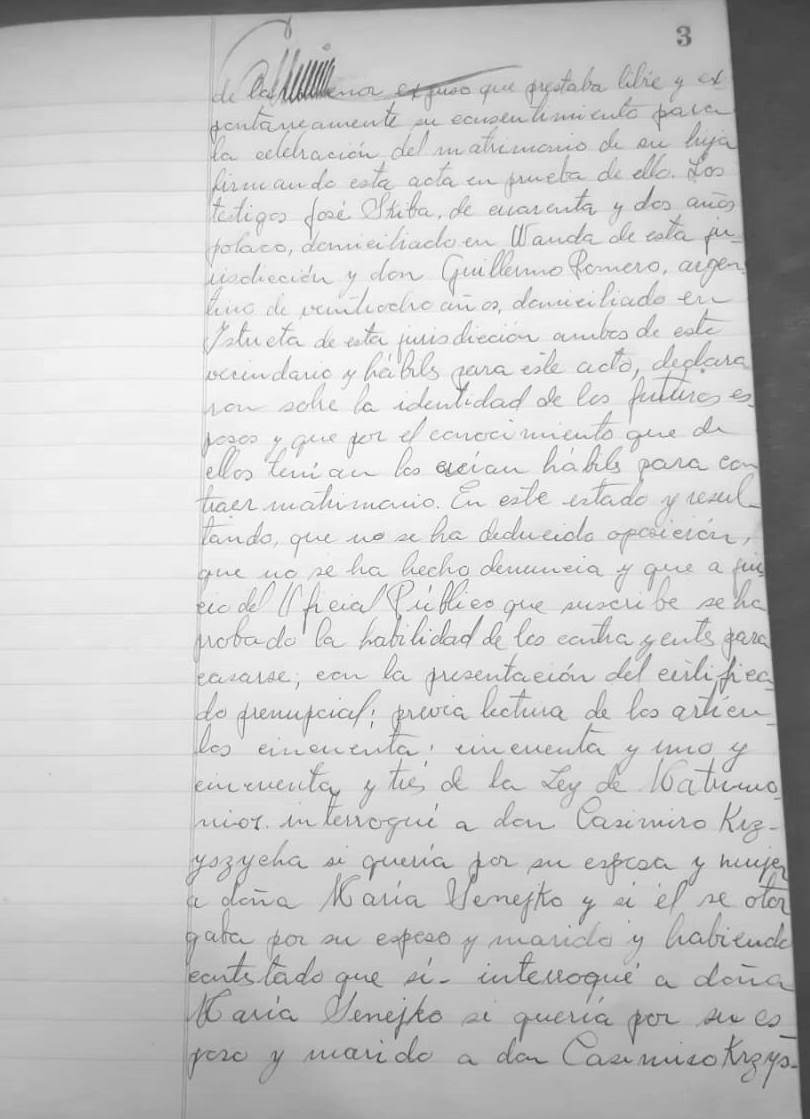 3
de la menor expuso que prestaba libre y ex-
pontáneamente su consentimiento para
la celebración del matrimonio de su hija
firmando esta acta en prueba de ello. Los
testigos José Skiba, de cuarenta y dos años
polaco, domiciliado en Wanda de esta ju-
risdicción y don Guillermo Romero, argen-
tino de veintiocho años, domiciliado en
Istueta de esta jurisdicción ambos de este
vecindario y hábiles para este acto, declara
ron sobre la identidad de los futuros es-
posos y que por el conocimiento que de
ellos tenían los creían hábiles para con
traer matrimonio. En este estado y resul-
tando, que no se ha deducido oposición,
que no se ha hecho denuncia y que a jui-
cio del Oficial Público que suscribe se ha
probado la habilidad de los contrayentes para
casarse; con la presentación del certifica-
do prenupcial; previa lectura de los artícu-
los cincuenta, cincuenta y uno y
cincuenta y tres de la Ley de Matrimo-
nios. interrogué a don Casimiro Krz-
yszycha si quería por su esposa y mujer
a doña María Senejko y si él se otor
gaba por su esposo y marido y habiendo
contestado que sí- interrogué a doña
María Senejko si quería por su es-
poso y marido a don Casimiro Krzys-